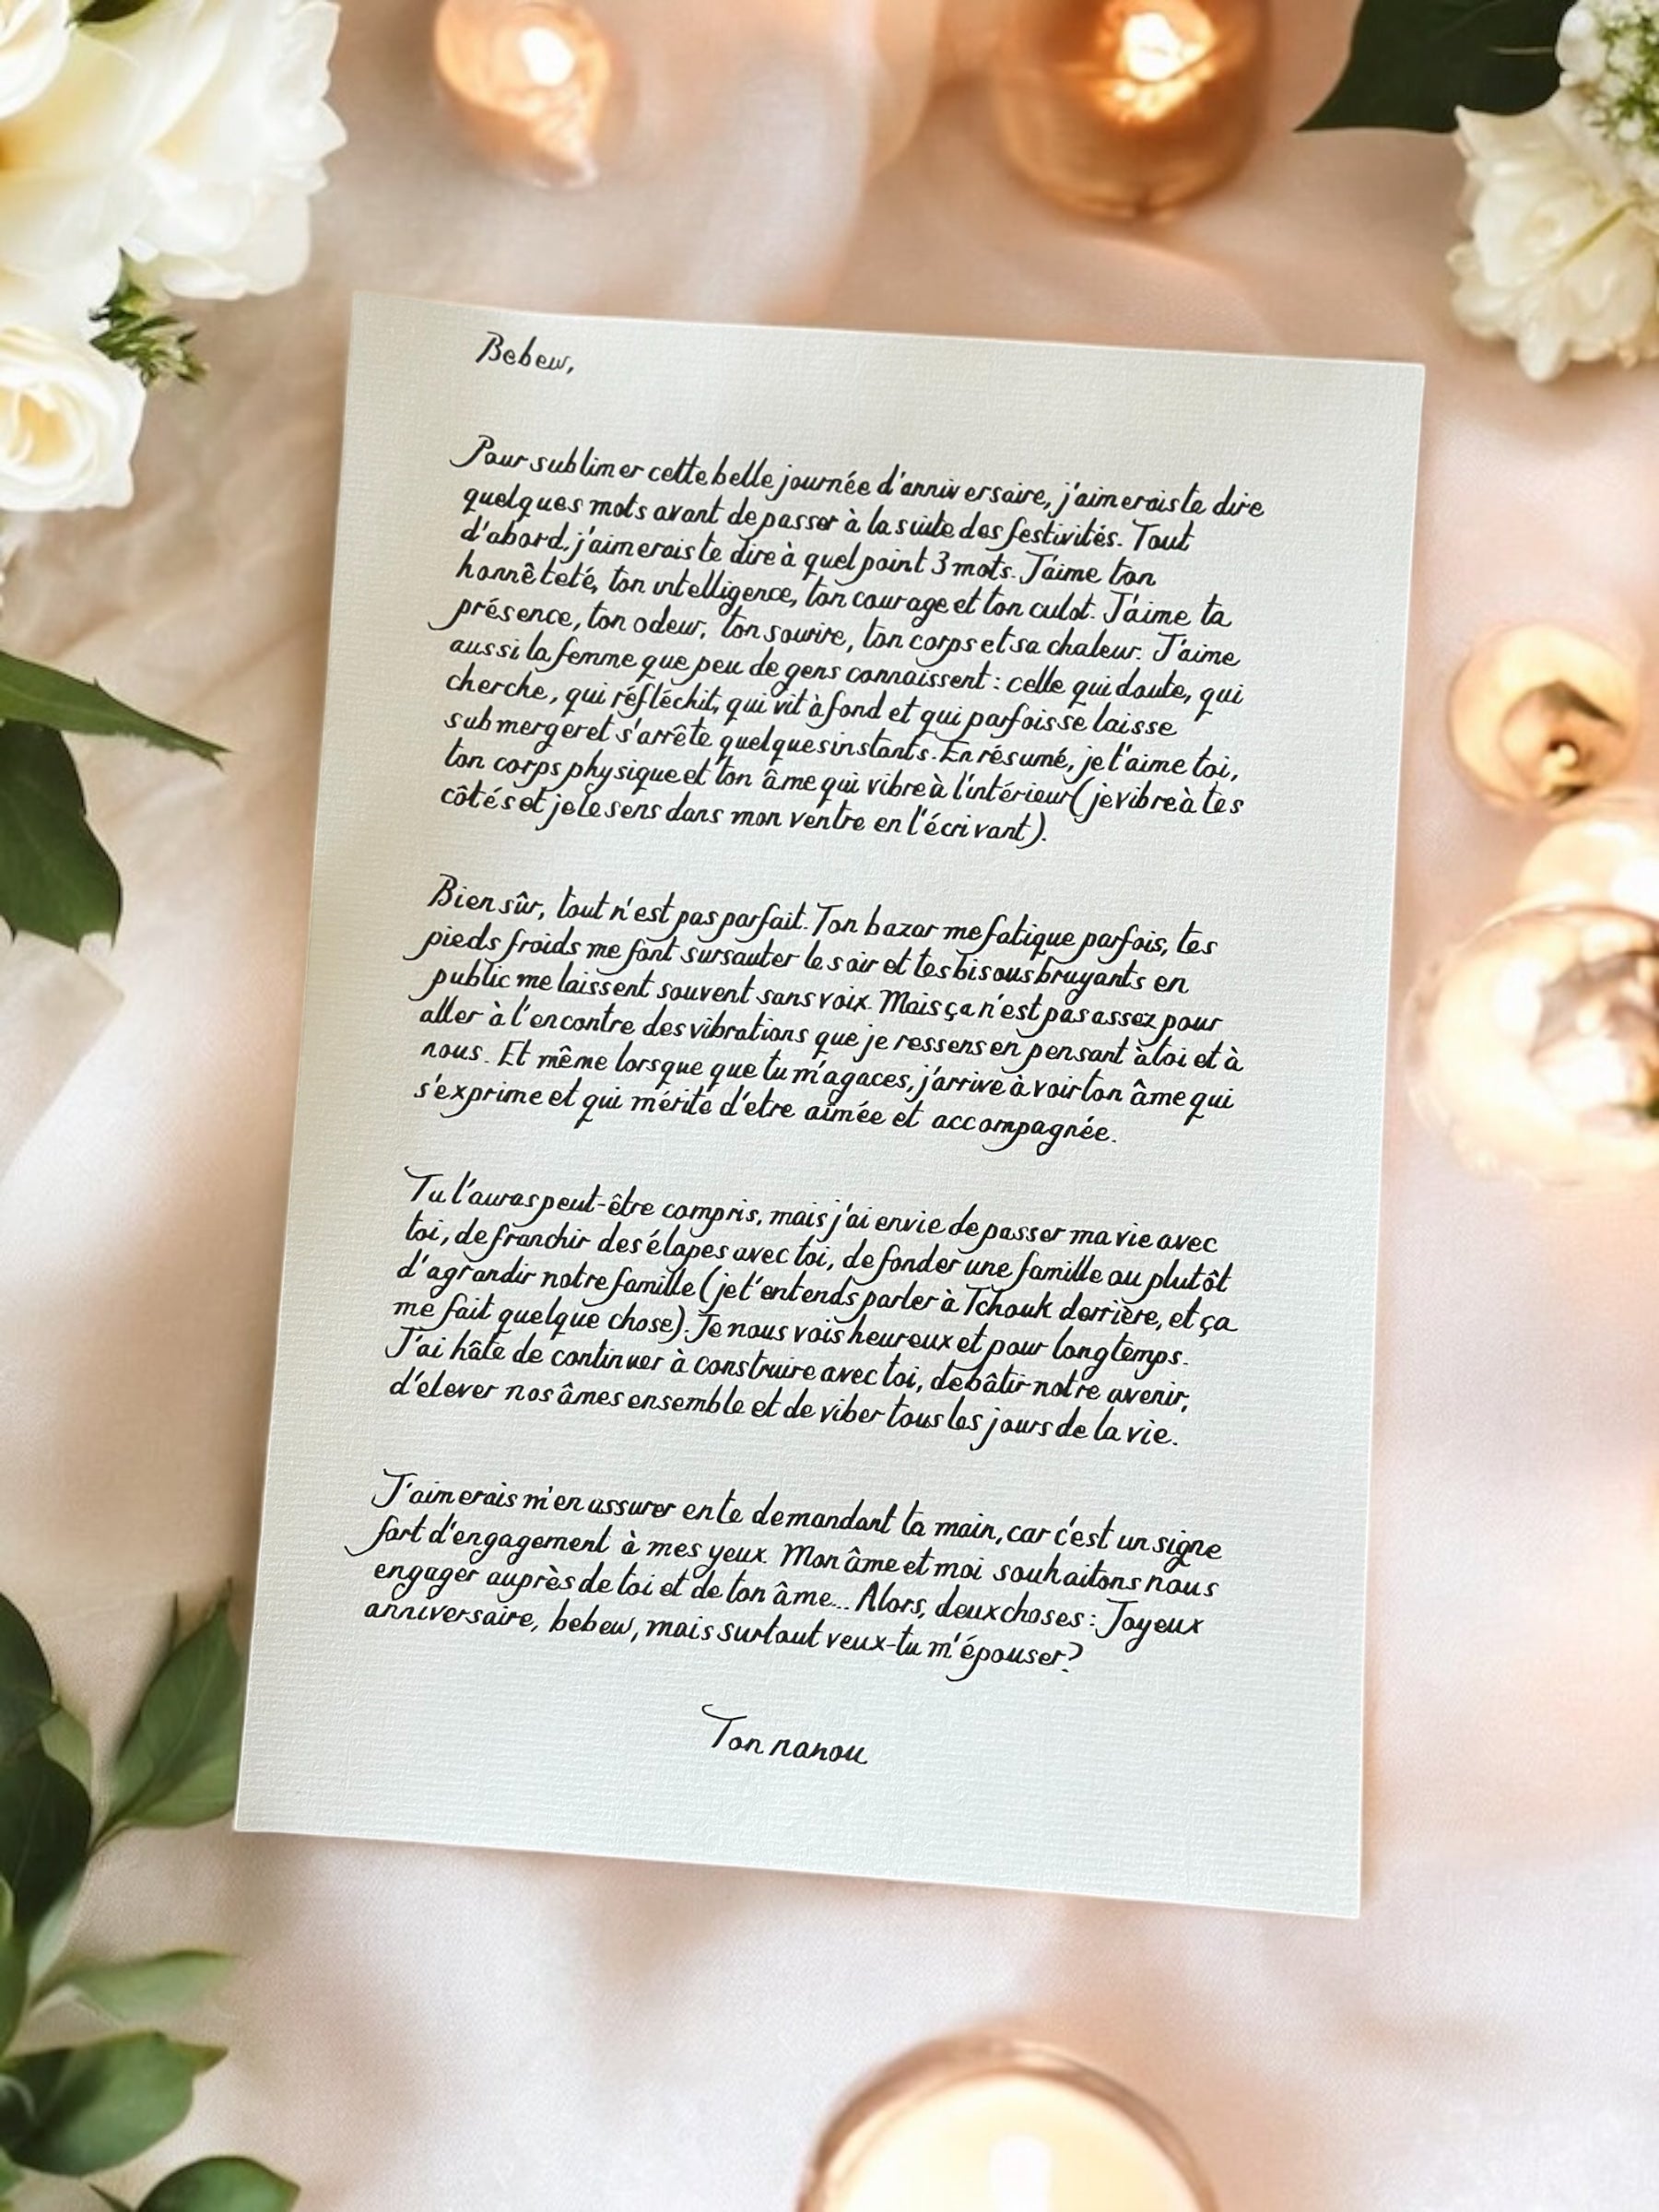 Bebew,
Pour sublimer cette belle journée d'anniversaire, j'aimerais te dire
quelques mots avant de passer à la suite des festivités. Tout
d'abord, j'aimerais te dire à quel point 3 mots. J'aime ton
honnêteté, ton intelligence, ton courage et ton culot. J'aime ta
présence, ton odeur, ton sourire, ton corps et sa chaleur. J'aime
aussi la femme que peu de gens connaissent : celle qui doute, qui
cherche, qui réfléchit, qui vit à fond et qui parfois se laisse
submerger et s'arrête quelques instants. En résumé, je t'aime toi,
ton corps physique et ton âme qui vibre à l'intérieur (je vibre à tes
côtés et je le sens dans mon ventre en l'écrivant).
Bien sûr, tout n'est pas parfait. Ton bazar me fatique parfois, tes
pieds froids me font sursauter le soir et tes bisous bruyants en
public me laissent souvent sans voix. Mais ça n'est pas assez pour
aller à l'encontre des vibrations que je ressens en pensant à toi et à
nous. Et même lorsque que tu m'agaces, j'arrive à voir ton âme qui
s'exprime et qui mérite d'etre aimée et accompagnée.
Tu l'auras peut-être compris, mais j'ai envie de passer ma vie avec
toi, de franchir des étapes avec toi, de fonder une famille ou plutôt
d'agrandir notre famille (je t'entends parler à Tchouk derrière, et ça
me fait quelque chose). Je nous vois heureux et pour longtemps.
J'ai hâte de continuer à construire avec toi, de bâtir notre avenir,
d'elever nos âmes ensemble et de viber tous les jours de la vie.
J'aimerais m'en assurer en te demandant ta main, car c'est un signe
fort d'engagement à mes yeux. Mon âme et moi souhaitons nous
engager auprès de toi et de ton âme... Alors, deux choses : Joyeux
anniversaire, bebew, mais surtout veux-tu m'épouser?
Ton nanou